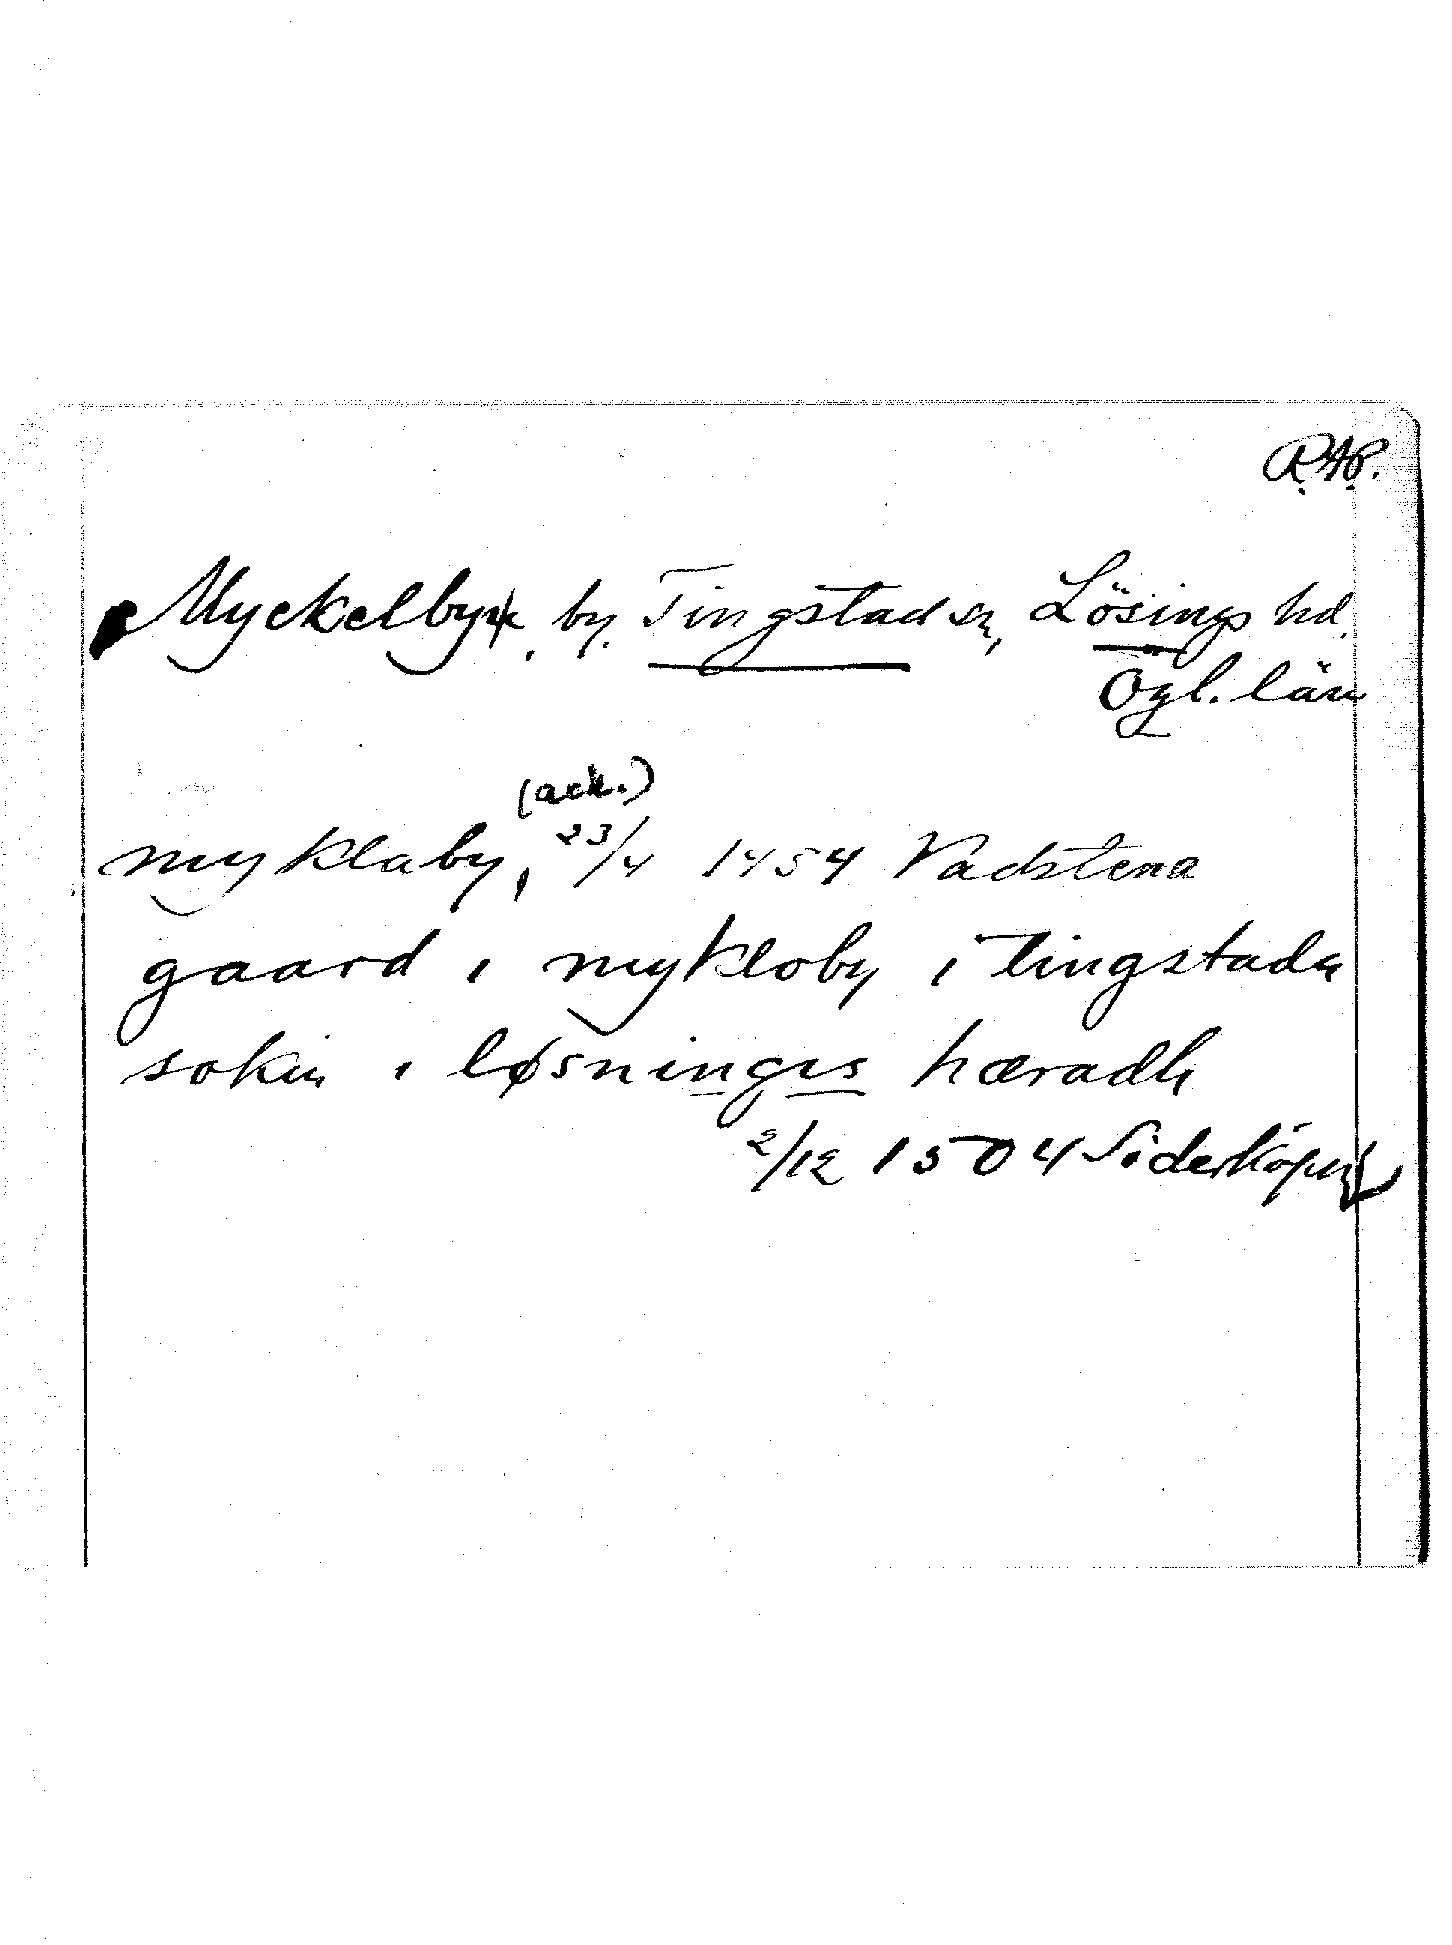 R.A.P.
Myckelby, by. Tingstad sn, Lösings hd.
Ögl. län
(ack.)
myklaby, 23/4 1454 Vadstena
gaard i mykloby i Tingstada
sokin i løsningis hæradh
2/12 1504 Söderköping